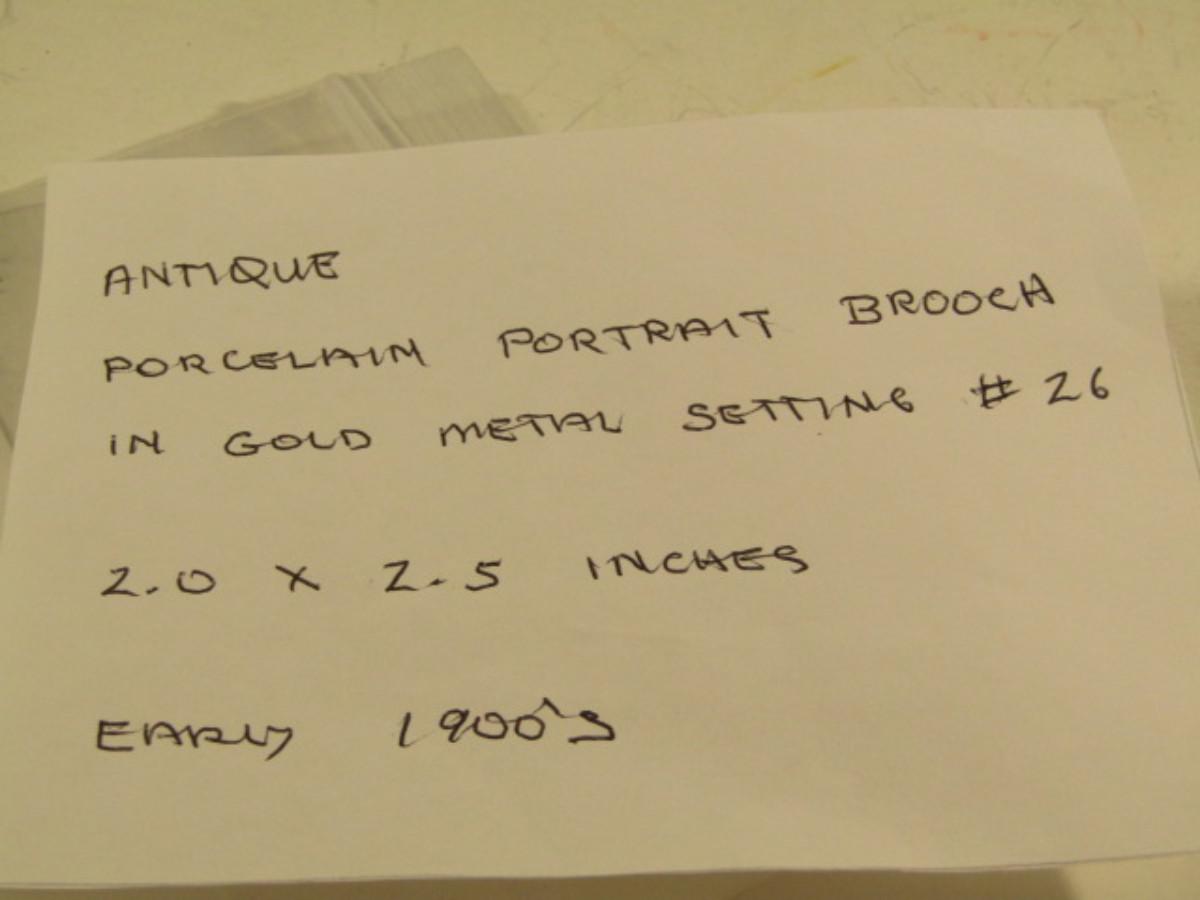 ANTIQUE
PORCELAIN PORTRAIT BROOCH
IN GOLD METAL SETTING # 26
2.0 X 2.5 INCHES
EARLY 1900's